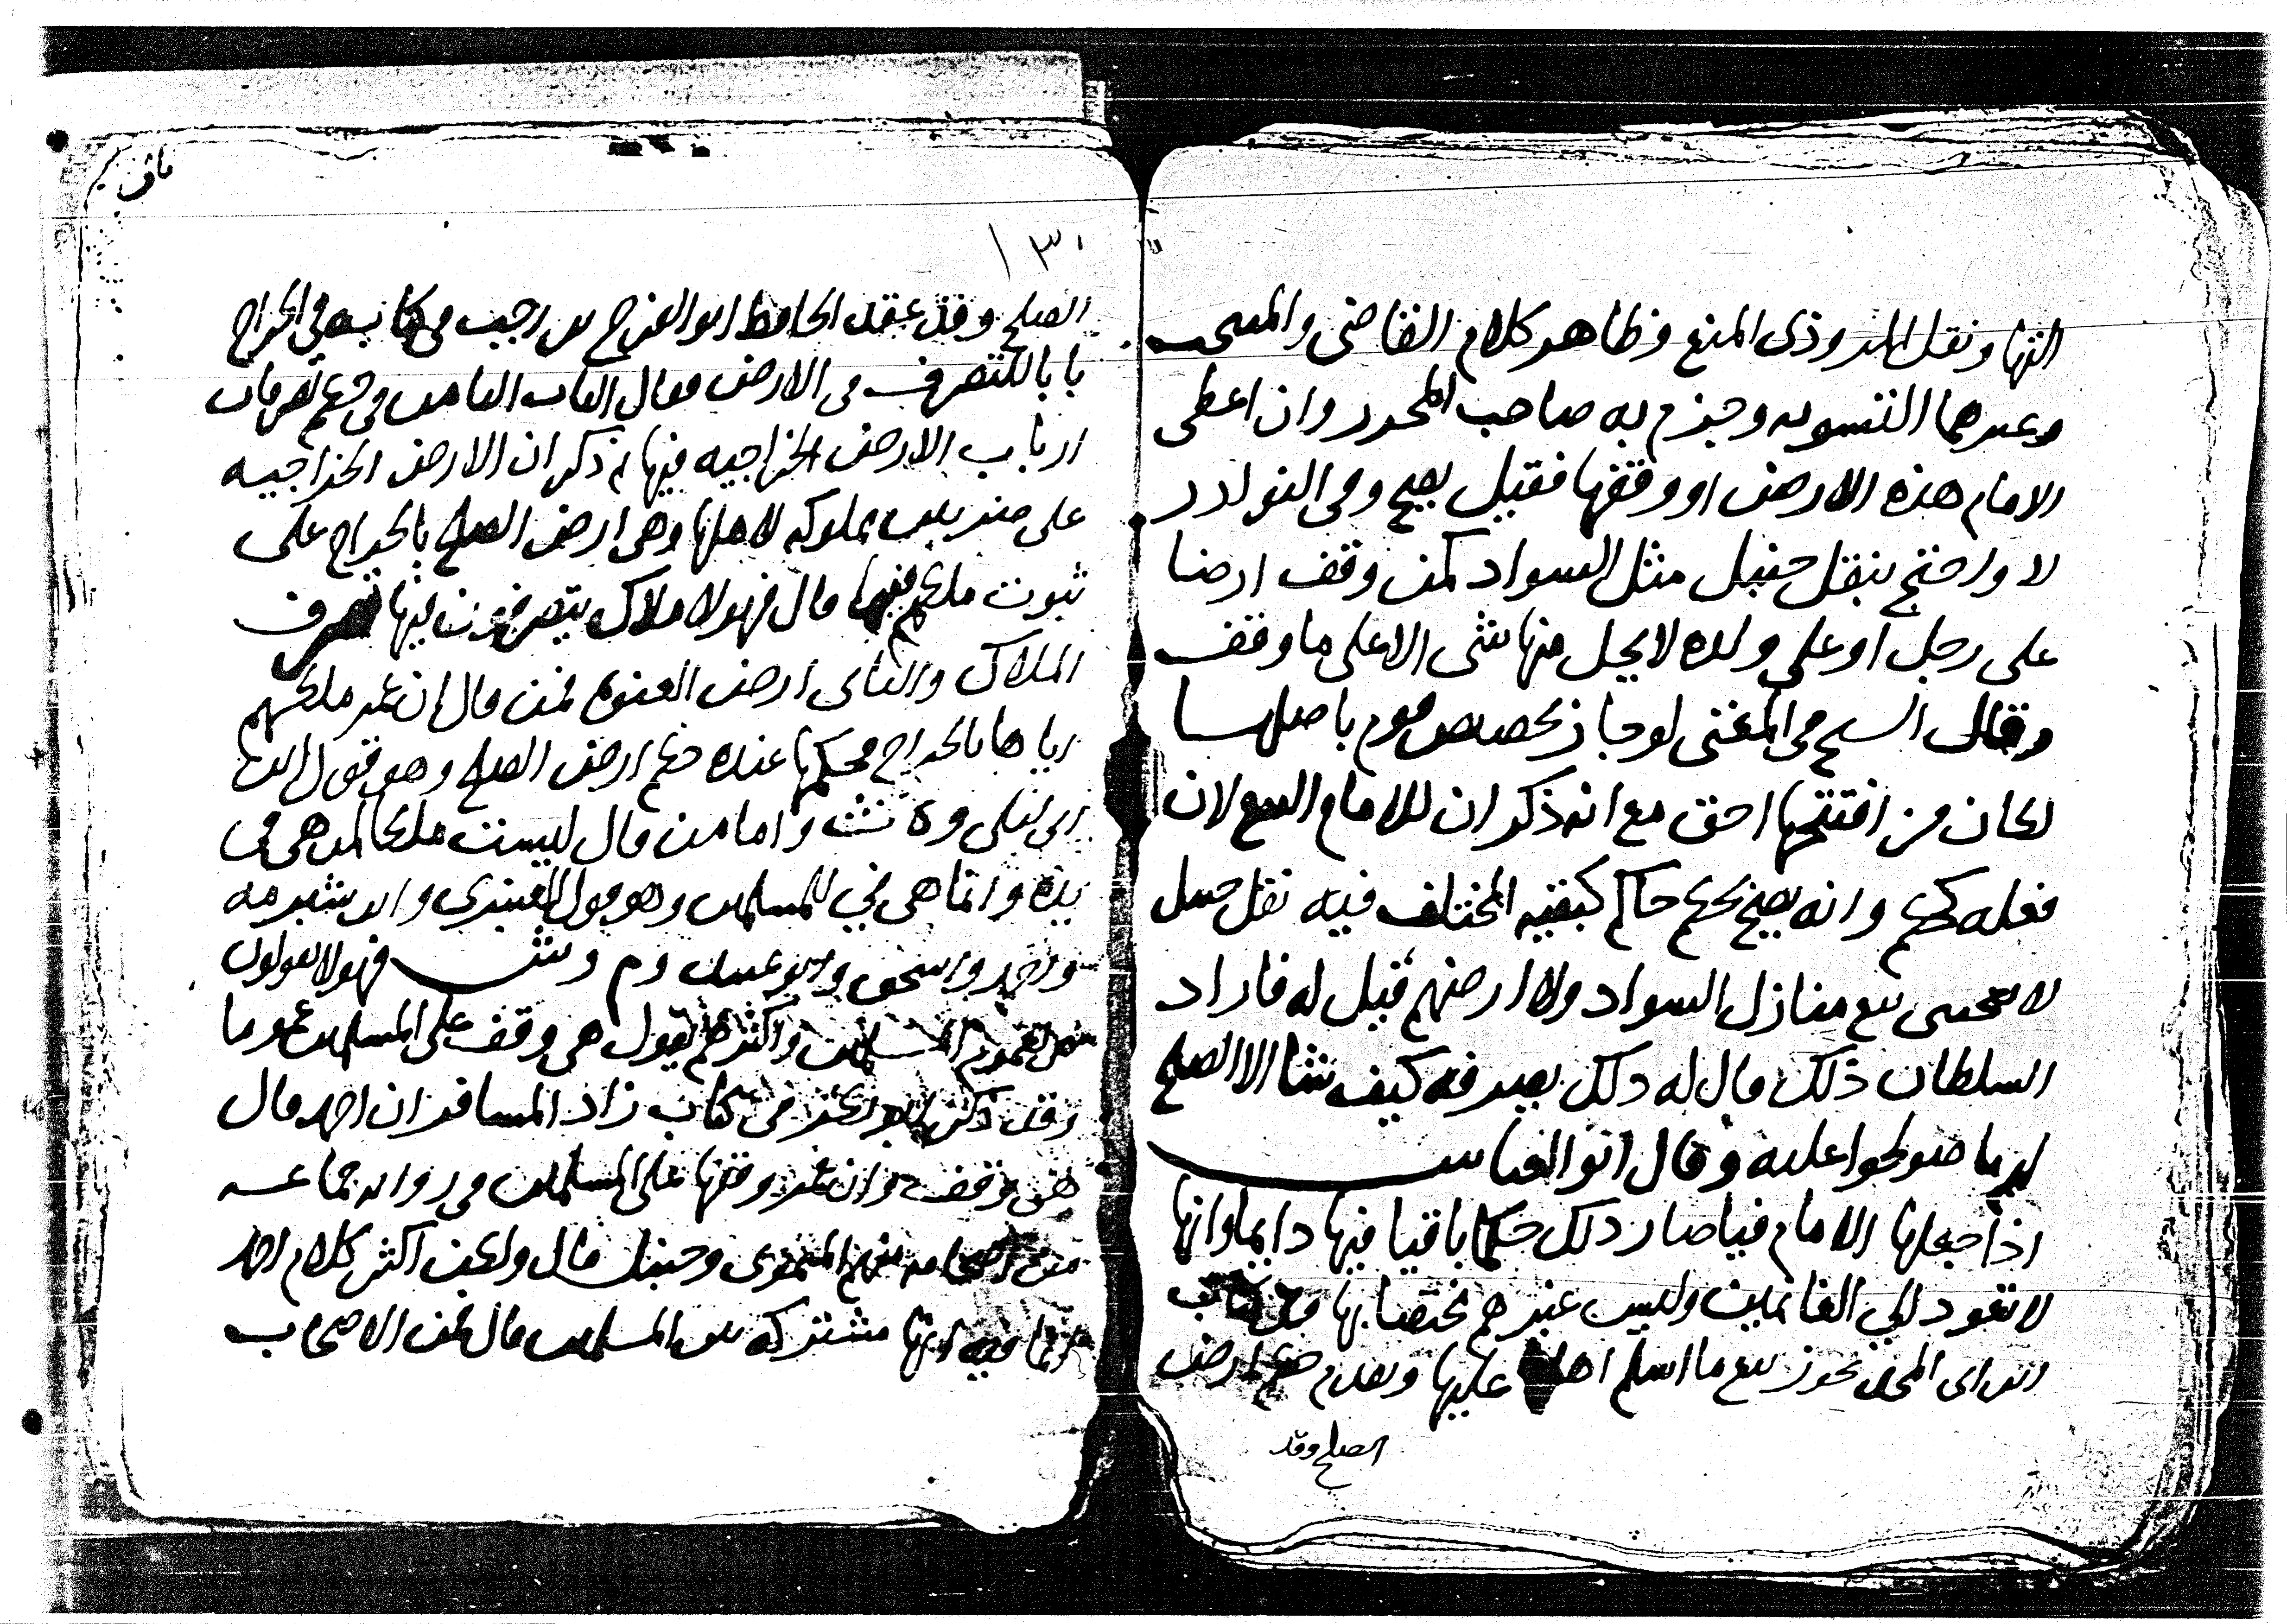 اليها ونقل المروذي المنع وظاهر كلام القاضي والمنتخب
وغيرهما التسويه وجزم به صاحب المحرر وان اعطى
الامام هذه الارض او وقفها فقيل يصح وفي النوادر
لا واحتج بنقل حنبل مثل السواد كمن وقف ارضا
على رجل او على ولده لا يحل منها شي الا على ما وقف
وقال الشيخ في المغني لو جاز تخصيص قوم باصلها
لكان من افتتحها احق مع انه ذكر ان للامام البيع لان
فعله كحكم وانه يصح بحكم حاكم كبقية المختلف فيه نقل حنبل
لا يعجبني بيع منازل السواد ولا ارضهم قيل له فاراد
السلطان ذلك قال له ذلك يصرفه كيف شا الا الصلح
لهم ما صولحوا عليه وقال ابو العباس
اذا جعلها الامام فيا صار ذلك حكما باقيا فيها دايما وانها
لا تعود الى الغانمين وليس غيرهم مختصا بها
المجد نحوز بيع ما اسلم اهله عليها وتقدم حكم ارض
الصلح وقد
١٣٠
الصلح وقد عقد الحافظ ابو الفرج بن رجب في كتابه في الخراج
بابا للتصرف في الارض فقال الباب الثامن في حكم تصرفات
ارباب الارض الخراجيه فيها ثم ذكر ان الارض الخراجيه
على ضربين مملوكه لاهلها وهي ارض الصلح بالخراج على
ثبوت ملكهم فيها قال فهولا ملاك يتصرفون فيها تصرف
الملاك والثاني ارض العنوه فمن قال ان عمر ملكهم
اياها بالخراج فحكمها عنده حكم ارض الصلح وهو قول
ابي ليلى واما من قال ليست ملكا لمن هي في
يده وانما هي في للمسلمين وهو قول العنبري وابن شبرمه
واحمد واسحق وابو عبيد وم وش فهولا يقولون
هي لعموم المسلمين واكثرهم يقول هي وقف على المسلمين عموما
وقد ذكر ابو بكر في كتاب زاد المسافر ان احمد قال
هي وقف وان عمر وقفها على المسلمين في روايه جماعه
من اصحابه منهم المروذي وحنبل قال ولكن اكثر كلام احمد
انها فيه وانها مشتركه بين المسلمين قال فمن الاصحاب